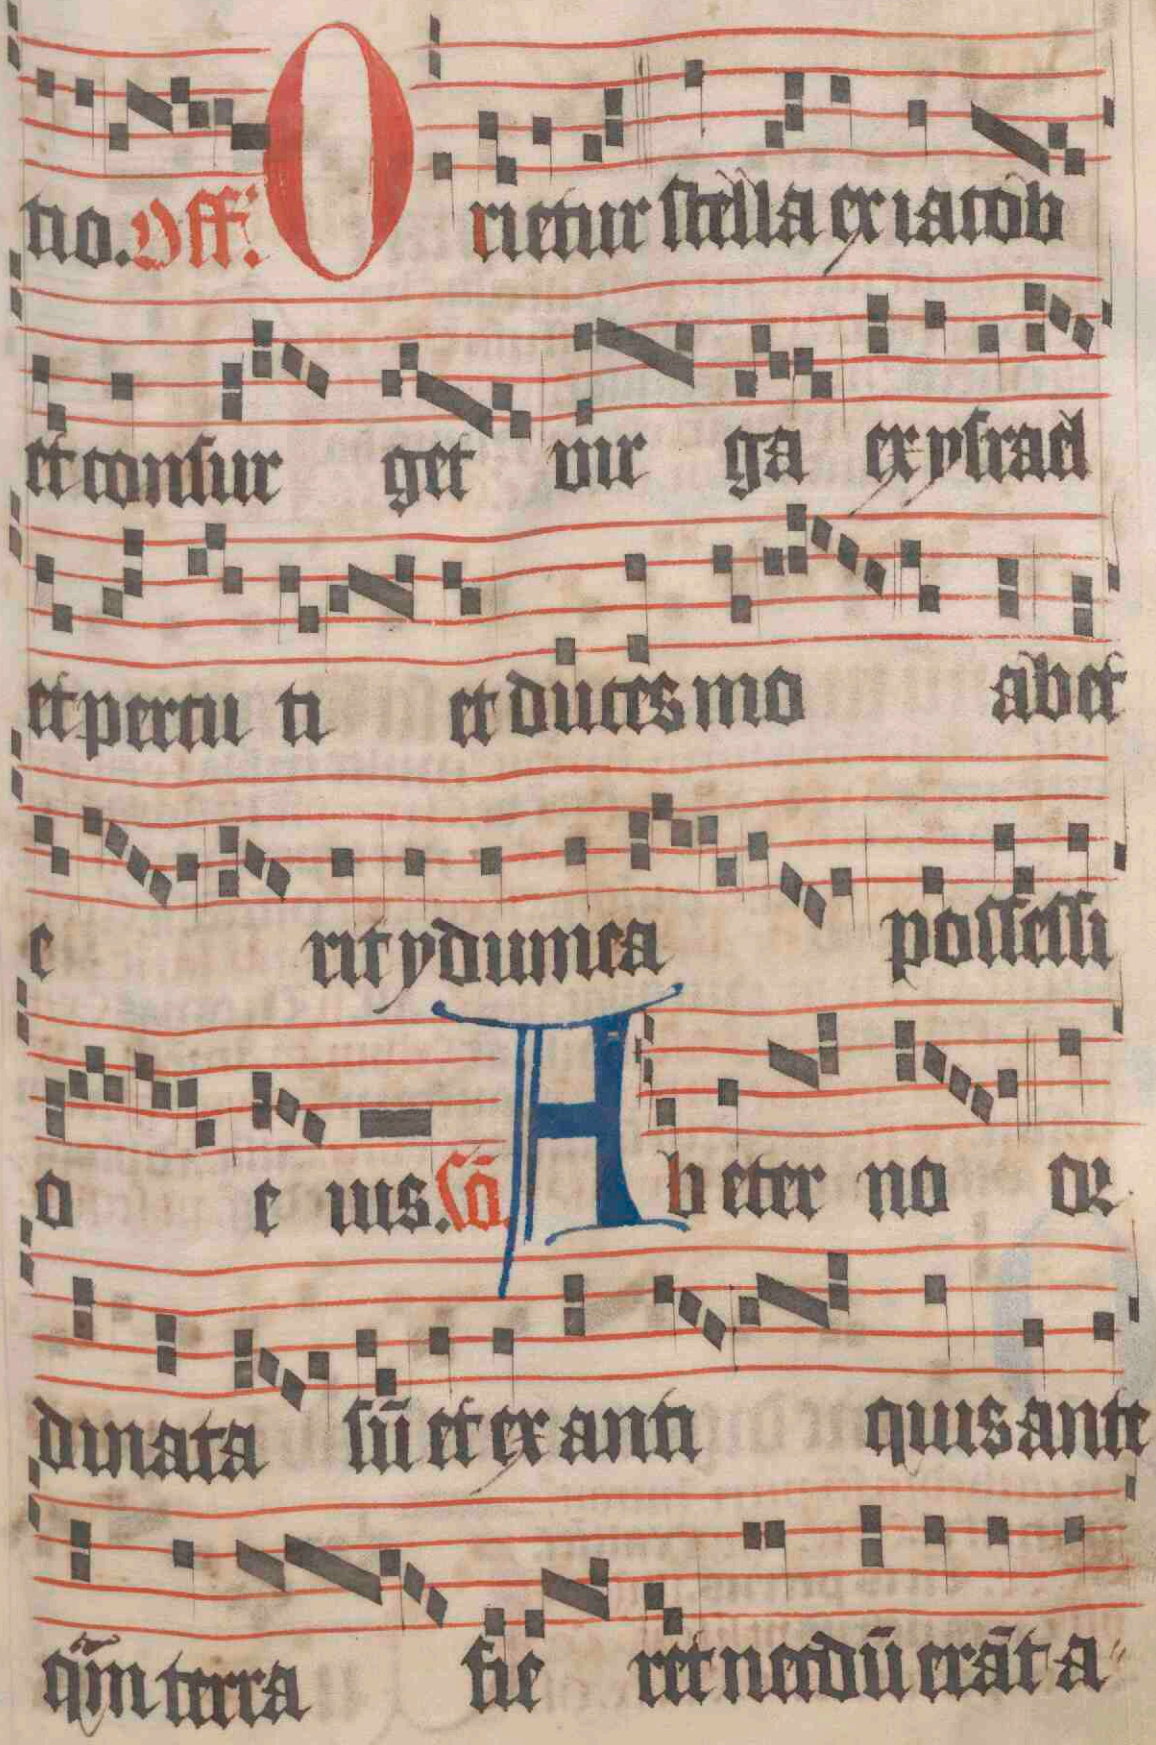 tio. Off: Orietur stella ex iacob
et consur get vir ga ex ysrael
et percu ti et duces mo ab et
e rit ydumea possessi
o e ius. Cō. Ab eter no or
dinata sū et ex anti quis ante
q̄m terra fie ret necdū erāt a